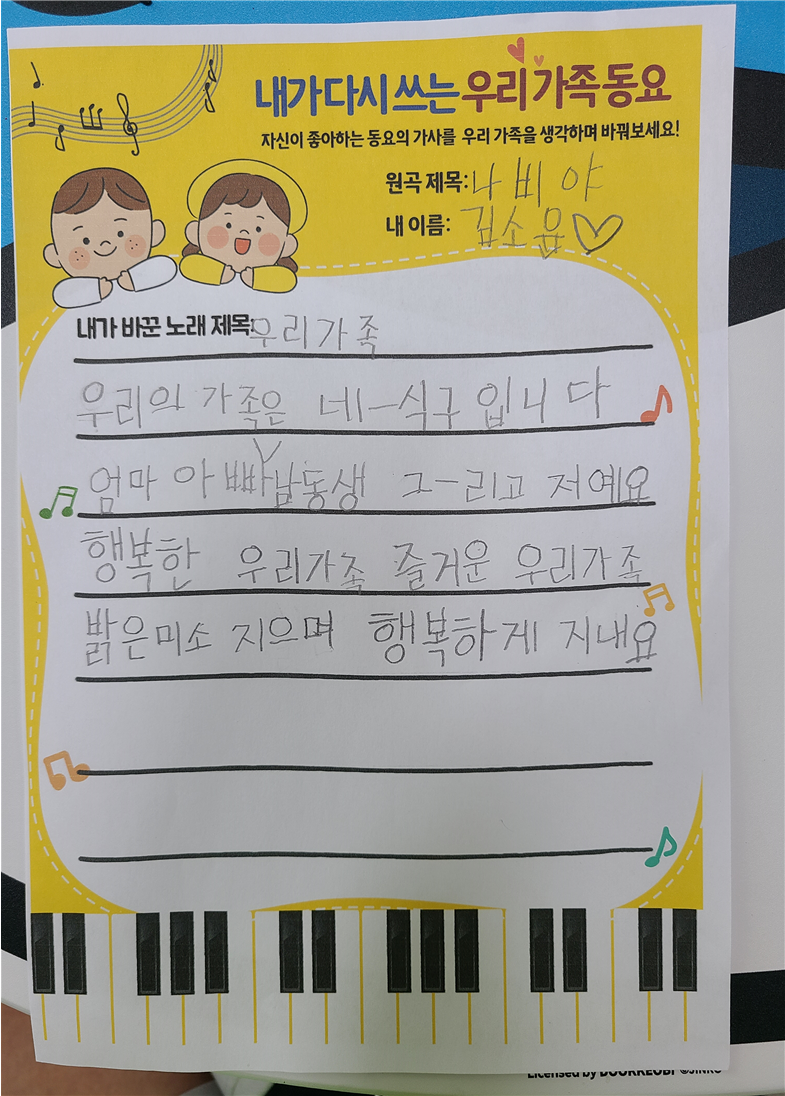 내가 다시 쓰는 우리 가족 동요
자신이 좋아하는 동요의 가사를 우리 가족을 생각하며 바꿔보세요!
원곡 제목: 나비야
내 이름: 김소윤♡
내가 바꾼 노래 제목: 우리가족
우리의 가족은 네-식구 입니다
엄마 아빠∨남동생 그-리고 저예요
행복한 우리가족 즐거운 우리가족
밝은미소 지으며 행복하게 지내요
Licensed by DOORKEUBI ©JINRO